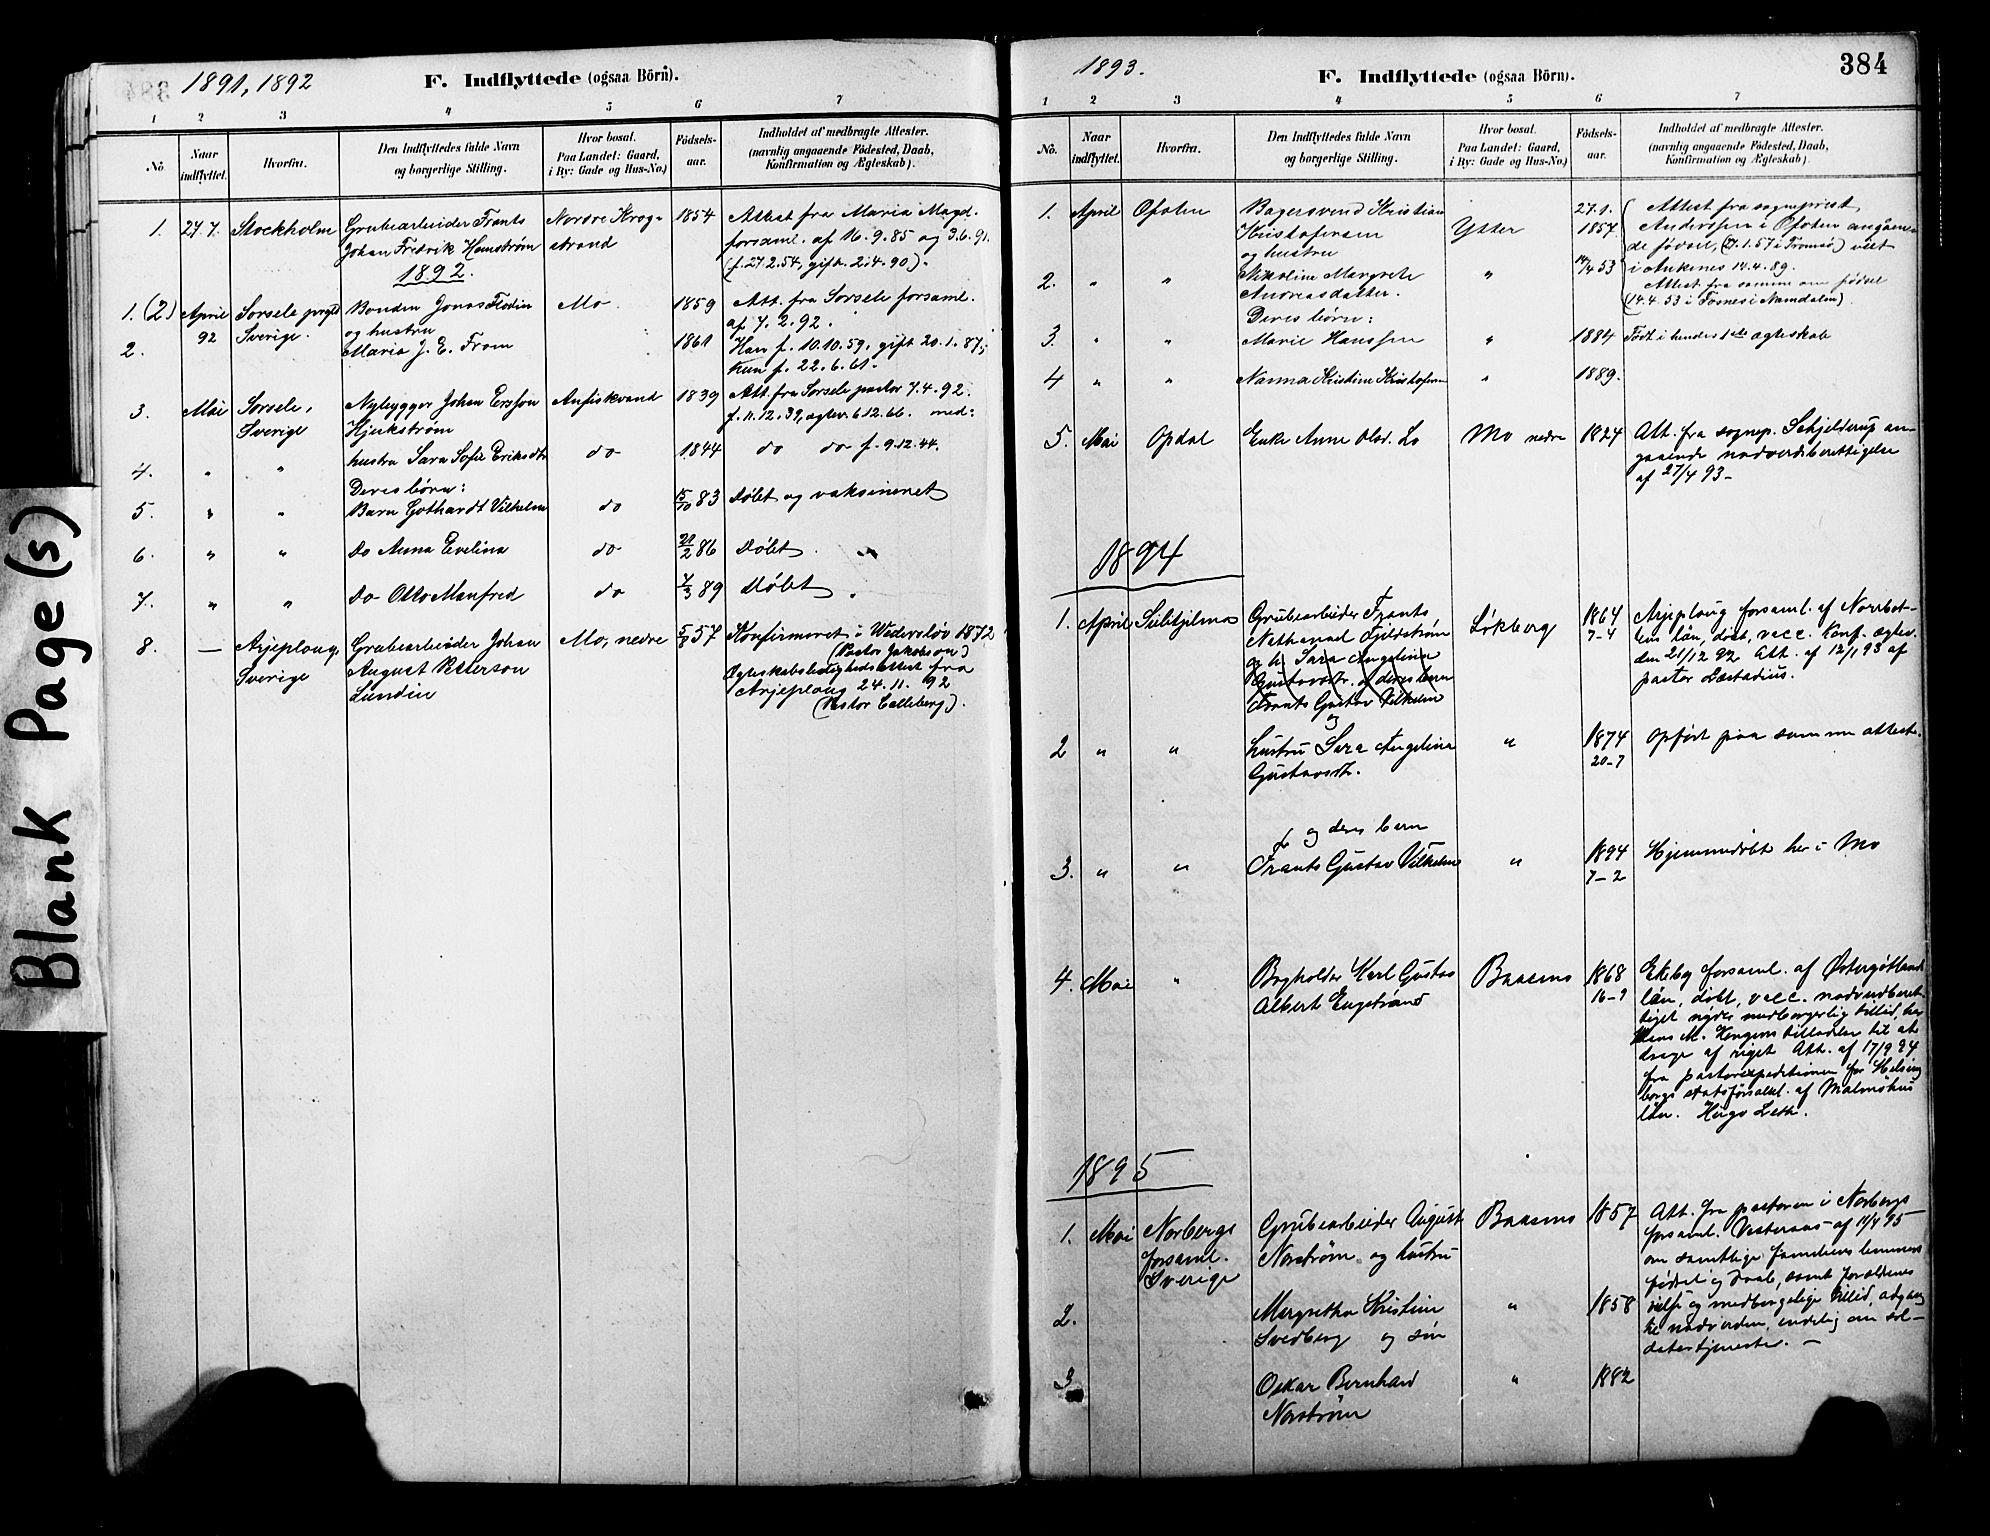 Blank Page(s)
1891, 1892
F. Indflyttede (ogsaa Börn).
1 2 3 4 5 6 7
No. Naar indflyttet. Hvorfra. Den Indflyttedes fulde Navn og borgerlige Stilling. Hvor bosat. Paa Landet: Gaard, i By: Gade og Hus-No.) Födsels-aar. Indholdet af medbragte Attester. (navnlig angaaende Födested, Daab, Konfirmation og Ægteskab).
1. 27.7. Stockholm Grubearbeider Frants Nordre Krog- 1854 Attest fra Maria Magd.
Johan Fredrik Hamstrøm strand forsaml. af 16.9.85 og 3.6.91.
(f. 27 2.54, gift. 2.4.90).
1892.
1. (2) April Sorsele Bonden Jonas Flodin Mo 1859 Att. fra Sorsele forsaml.
92 Sverige. og hustru af 7.2.92.
2. Maria J. E. From 1861 Han f. 10.10.59, gift 20.1.87,
hun f. 22.6.61.
3. Mai Sorsele, Nybygger Johan Ersson 1839 Att. fra Sorsele pastor 7.4.92.
Sverige f. 11.12.39, 6.12.66. med:
4. " " hustru Sara Sofie Eriksdtr do 1844 do do f. 9.12.44.
Deres børn:
5. " " Barn Gothardt Vilhelm do 15/10 83 Døbt og vaksineret
6. " " Do Anna Evelina do 21/2 86 Døbt "
7. " " Do Otto Manfred do 7/3 89 Døbt "
8. — Arjeploug, Grubearbeider Johan Mo, nedre 5/8 57 Konfirmeret i 1872
Sverige August Peterson (Pastor Jakobson)
Lundin Ægteskabsledighedsattest fra
Arjeploug 24.11.92
(Pastor Calleberg).
1893.
F. Indflyttede (ogsaa Börn).
384
1 2 3 4 5 6 7
No. Naar indflyttet. Hvorfra. Den Indflyttedes fulde Navn og borgerlige Stilling. Hvor bosat. Paa Landet: Gaard, i By: Gade og Hus-No.) Födsels-aar. Indholdet af medbragte Attester. (navnlig angaaende Födested, Daab, Konfirmation og Ægteskab).
1. April Ofoten Bagersvend Kristian Ytter 27.1. Attest fra sogneprest
Kristofersen 1857 Anderssen i Ofoten angåen-
og hustru de føvsel, (27.1.57 i Tromsø) viet
2. " " Nikoline Margrete " 14/4 53 i Ankenes 14.4.89.
Andreasdatter. Attest fra samme om fødsel
Deres børn: (14.4.53 i Fosnes i Namdalen).
3. " " Marie Hanssen " 1884 Født i hendes 1ste ægteskab
4 " " Nanna Kristine Kristofersen " 1889.
5. Mai Opdal Enke Anne Olsd. Lo Mo nedre 1824 Att. fra sognep. Schjelderup an-
gaaende nadverdberettigelse
af 27/4 93 –
1894
1. April Grubearbeider Frants Løkberg 1864 Arjeploug forsaml. af Norrbot-
Nathanael Fjellstrøm 7-4 ten län, døbt, vacc. Konf. ægtev.
og h. Sara Angelina den 21/12 92 Att. af 12/1 93 af
Gustavsdtr. og deres barn pastor Læstadius.
Frants Gustav Vilhelm
og
2 " " hustru Sara Angelina " 1874 Opført paa samme attest.
Gustavsdtr. 20-7
og deres barn
3. " " Frants Gustav Vilhelm " 1894 Hjemmedøbt her i Mo
7-2
4. Mai " Bogholder Karl Gustav Baasmo 1868 Ekeby forsaml. af Østergötland
Albert Engstrand 16-9 län, døbt, vacc. nadverdberet-
tiget nyder medborgerlig tillid, har
Hans M. Kongens tilladelse til at
drage af riget Att. af 17/9 94
fra pastorexpeditionen for Helsing
borgs statsførsaml. af Malmøhus
län. Hugo Leth.
1895
1. Mai Norbergs Grubearbeider August Baasmo 1857 Att. fra pastoren i Norbergs
forsaml. Norstrøm og hustru forsaml. Vesteraas af 11/4 95
Sverige om samtlige familiens lemmers
fødsel og daab, samt forældrenes
2. Margretha Kristine " 1858 vielse og medborgelige tillid, adgang
Svedberg og søn til nadverden, endelig om sol-
datertjenester. –
3 Oskar Bernhard " 1882
Norstrøm